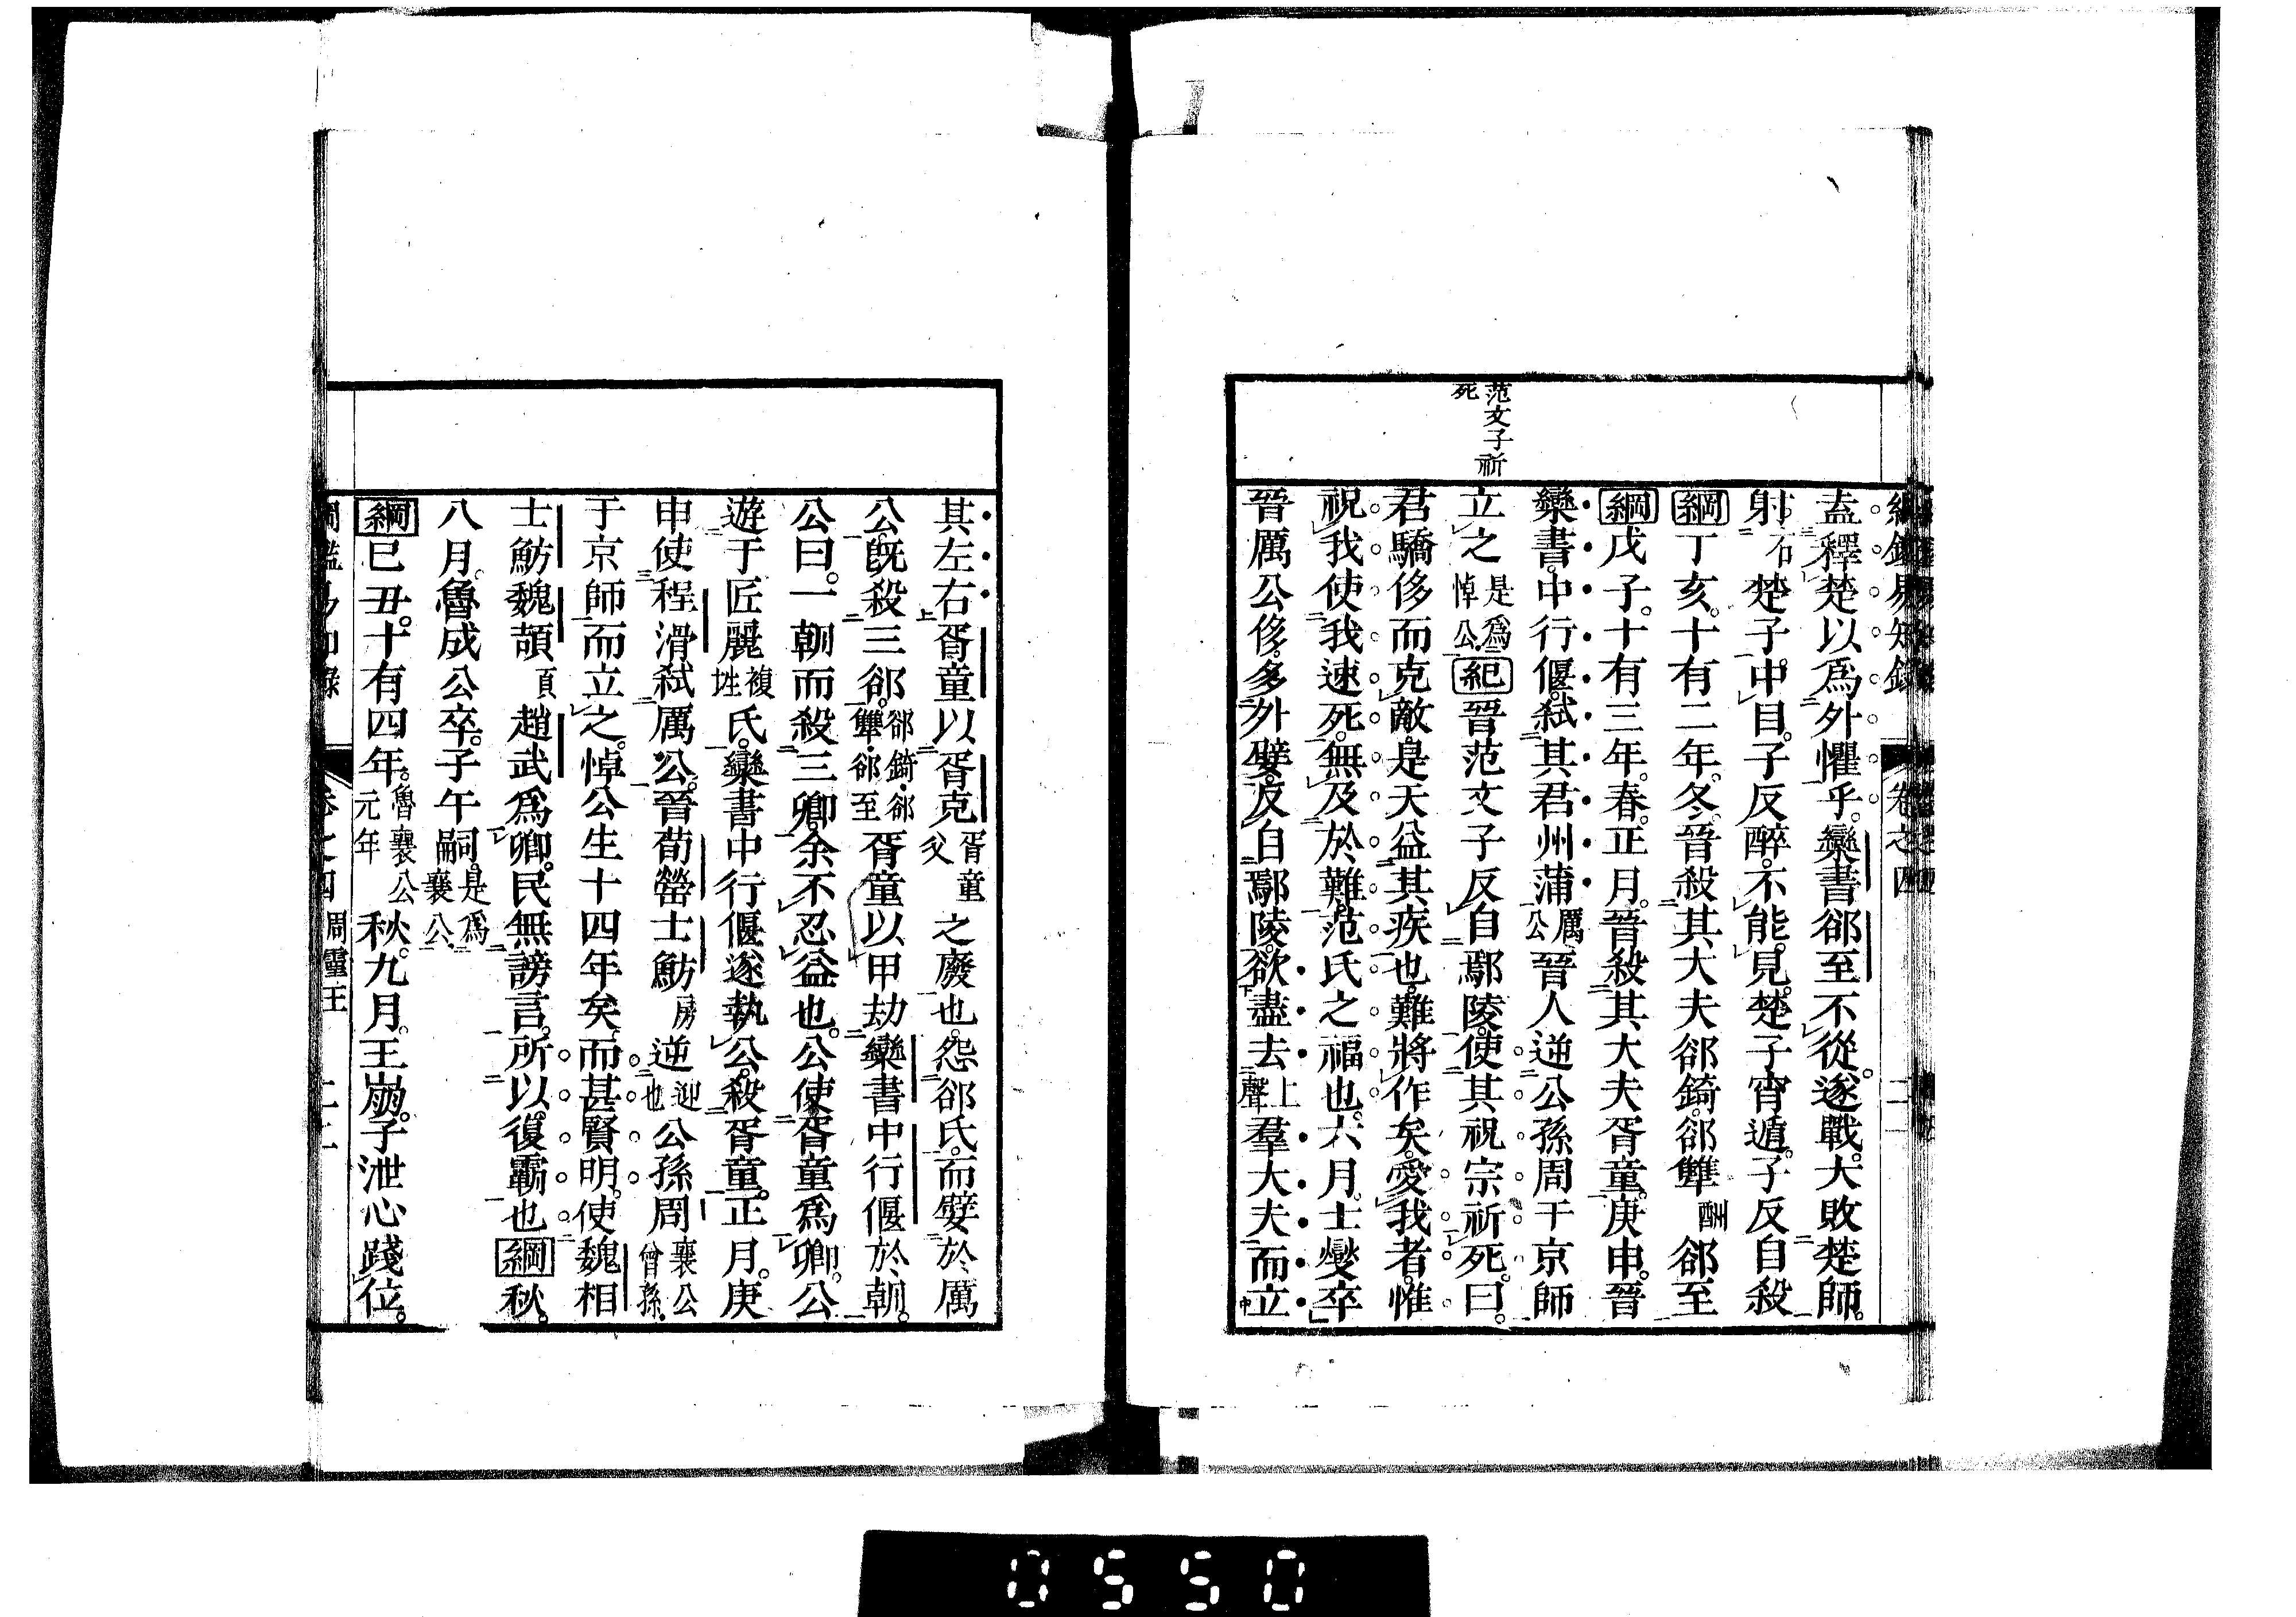 綱鑑易知錄 卷之四 二
范文子祈
死
盍釋楚以爲外懼乎。欒書郤至不從。遂戰。大敗楚師。
射石楚子。中目。子反醉。不能見。楚子宵遁。子反自殺
綱丁亥。十有二年。冬。晉殺其大夫郤錡。郤犨酬郤至
綱戊子。十有三年。春。正月。晉殺其大夫胥童。庚申。晉
欒書。中行偃。弑其君州蒲厲公晉人逆公孫周于京師
立之是爲悼公。紀晉范文子反自鄢陵。使其祝宗祈死。曰。
君驕侈而克敵。是天益其疾也。難將作矣。愛我者。惟
祝我使我速死。無及於難。范氏之福也。六月。士燮卒
晉厲公侈。多外嬖。反自鄢陵。欲盡去上聲羣大夫而立
其左右胥童以胥克胥童父之廢也。怨郤氏。而嬖於厲
公。旣殺三郤。郤錡。郤犨。郤至胥童以甲劫欒書中行偃於朝。
公曰。一朝而殺三卿。余不忍益也。公使胥童爲卿。公
遊于匠麗複姓氏。欒書中行偃遂執公。殺胥童。正月。庚
申使程滑弑厲公。晉荀罃士魴房逆迎也公孫周襄公曾孫。
于京師而立之。悼公生十四年矣。而甚賢明。使魏相
士魴魏頡頁趙武爲卿。民無謗言。所以復霸也綱秋。
八月。魯成公卒。子午嗣。是爲襄公。
綱己丑。十有四年。魯襄公元年秋。九月。王崩。子泄心踐位。
卷之四 周靈王 二
0550